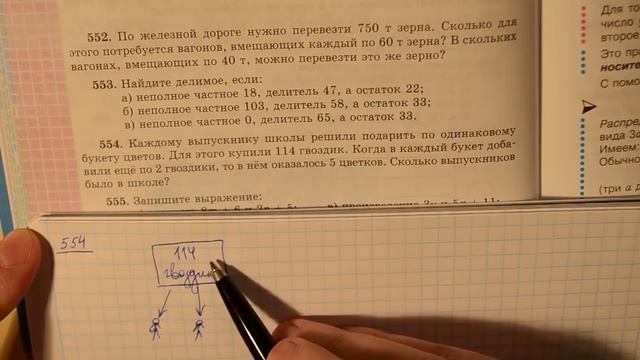 552. По железной дороге нужно перевезти 750 т зерна. Сколько для
этого потребуется вагонов, вмещающих каждый по 60 т зерна? В скольких
вагонах, вмещающих по 40 т, можно перевезти это же зерно?
553. Найдите делимое, если:
а) неполное частное 18, делитель 47, а остаток 22;
б) неполное частное 103, делитель 58, а остаток 33;
в) неполное частное 0, делитель 65, а остаток 33.
554. Каждому выпускнику школы решили подарить по одинаковому
букету цветов. Для этого купили 114 гвоздик. Когда в каждый букет доба-
вили ещё по 2 гвоздики, то в нём оказалось 5 цветков. Сколько выпускников
было в школе?
555. Запишите выражение:
Для то
число
второе
Это пра
носите
С помо
Распред
вида За
Имеем:
Обычно
(три а д
554
114
гвоздик